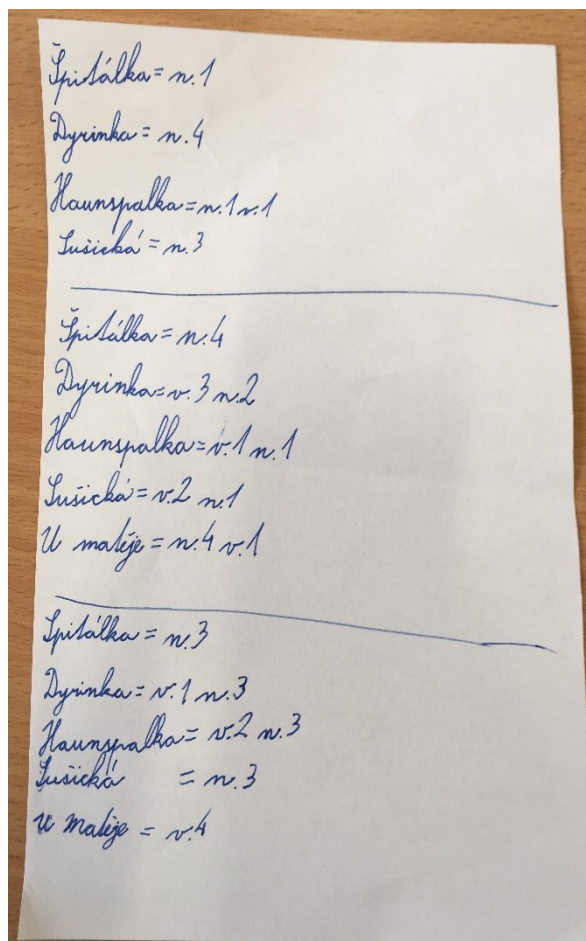 Špitálka = n.1
Dyrinka = n.4
Haunspalka = n.1 v.1
Sušická = n.3
Špitálka = n.4
Dyrinka = v.3 n.2
Haunspalka = v.1 n.1
Sušická = v.2 n.1
U matěje = n.4 v.1
Špitálka = n.3
Dyrinka = v.1 n.3
Haunspalka = v.2 n.3
Sušická = n.3
U Matěje = v.4